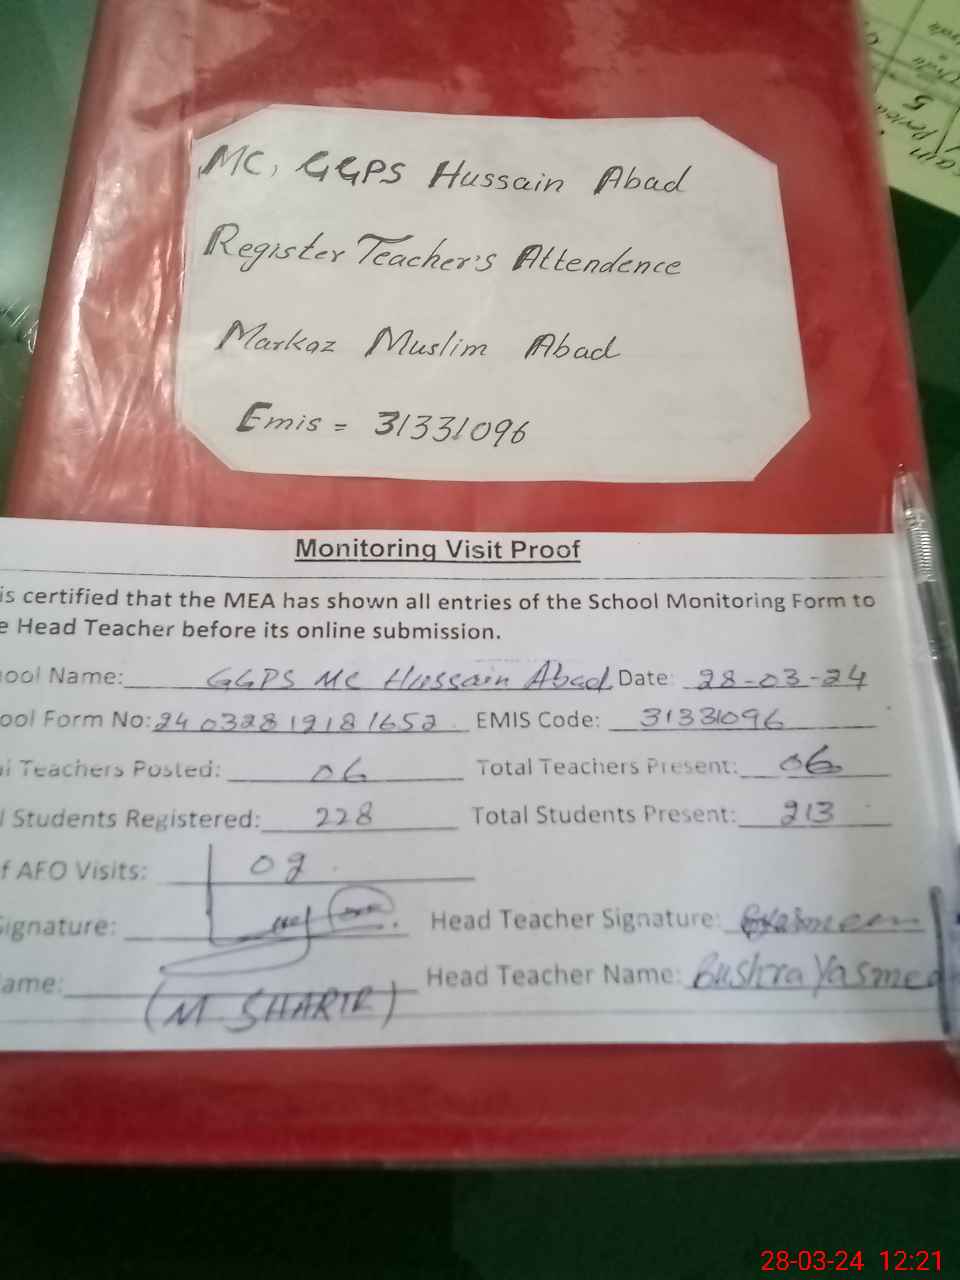 MC, GGPS Hussain Abad
Register Teacher's Attendence
Markaz Muslim Abad
Emis = 31331096
Monitoring Visit Proof
is certified that the MEA has shown all entries of the School Monitoring Form to
e Head Teacher before its online submission.
ool Name: GGPS MC Hussain Abad Date: 28-03-24
ool Form No: 24032812181652 EMIS Code: 31331096
Teachers Posted: 06 Total Teachers Present: 06
l Students Registered: 228 Total Students Present: 213
f AFO Visits:
ignature: Head Teacher Signature:
ame: (M SHARIF) Head Teacher Name: Bushra Yasmee
28-03-24 12:21